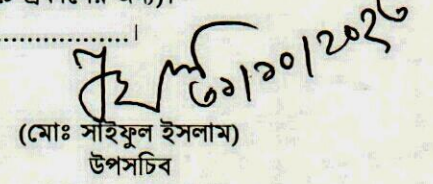 ...............................।
৩১/১০/২০২৩
(মোঃ সাইফুল ইসলাম)
উপসচিব